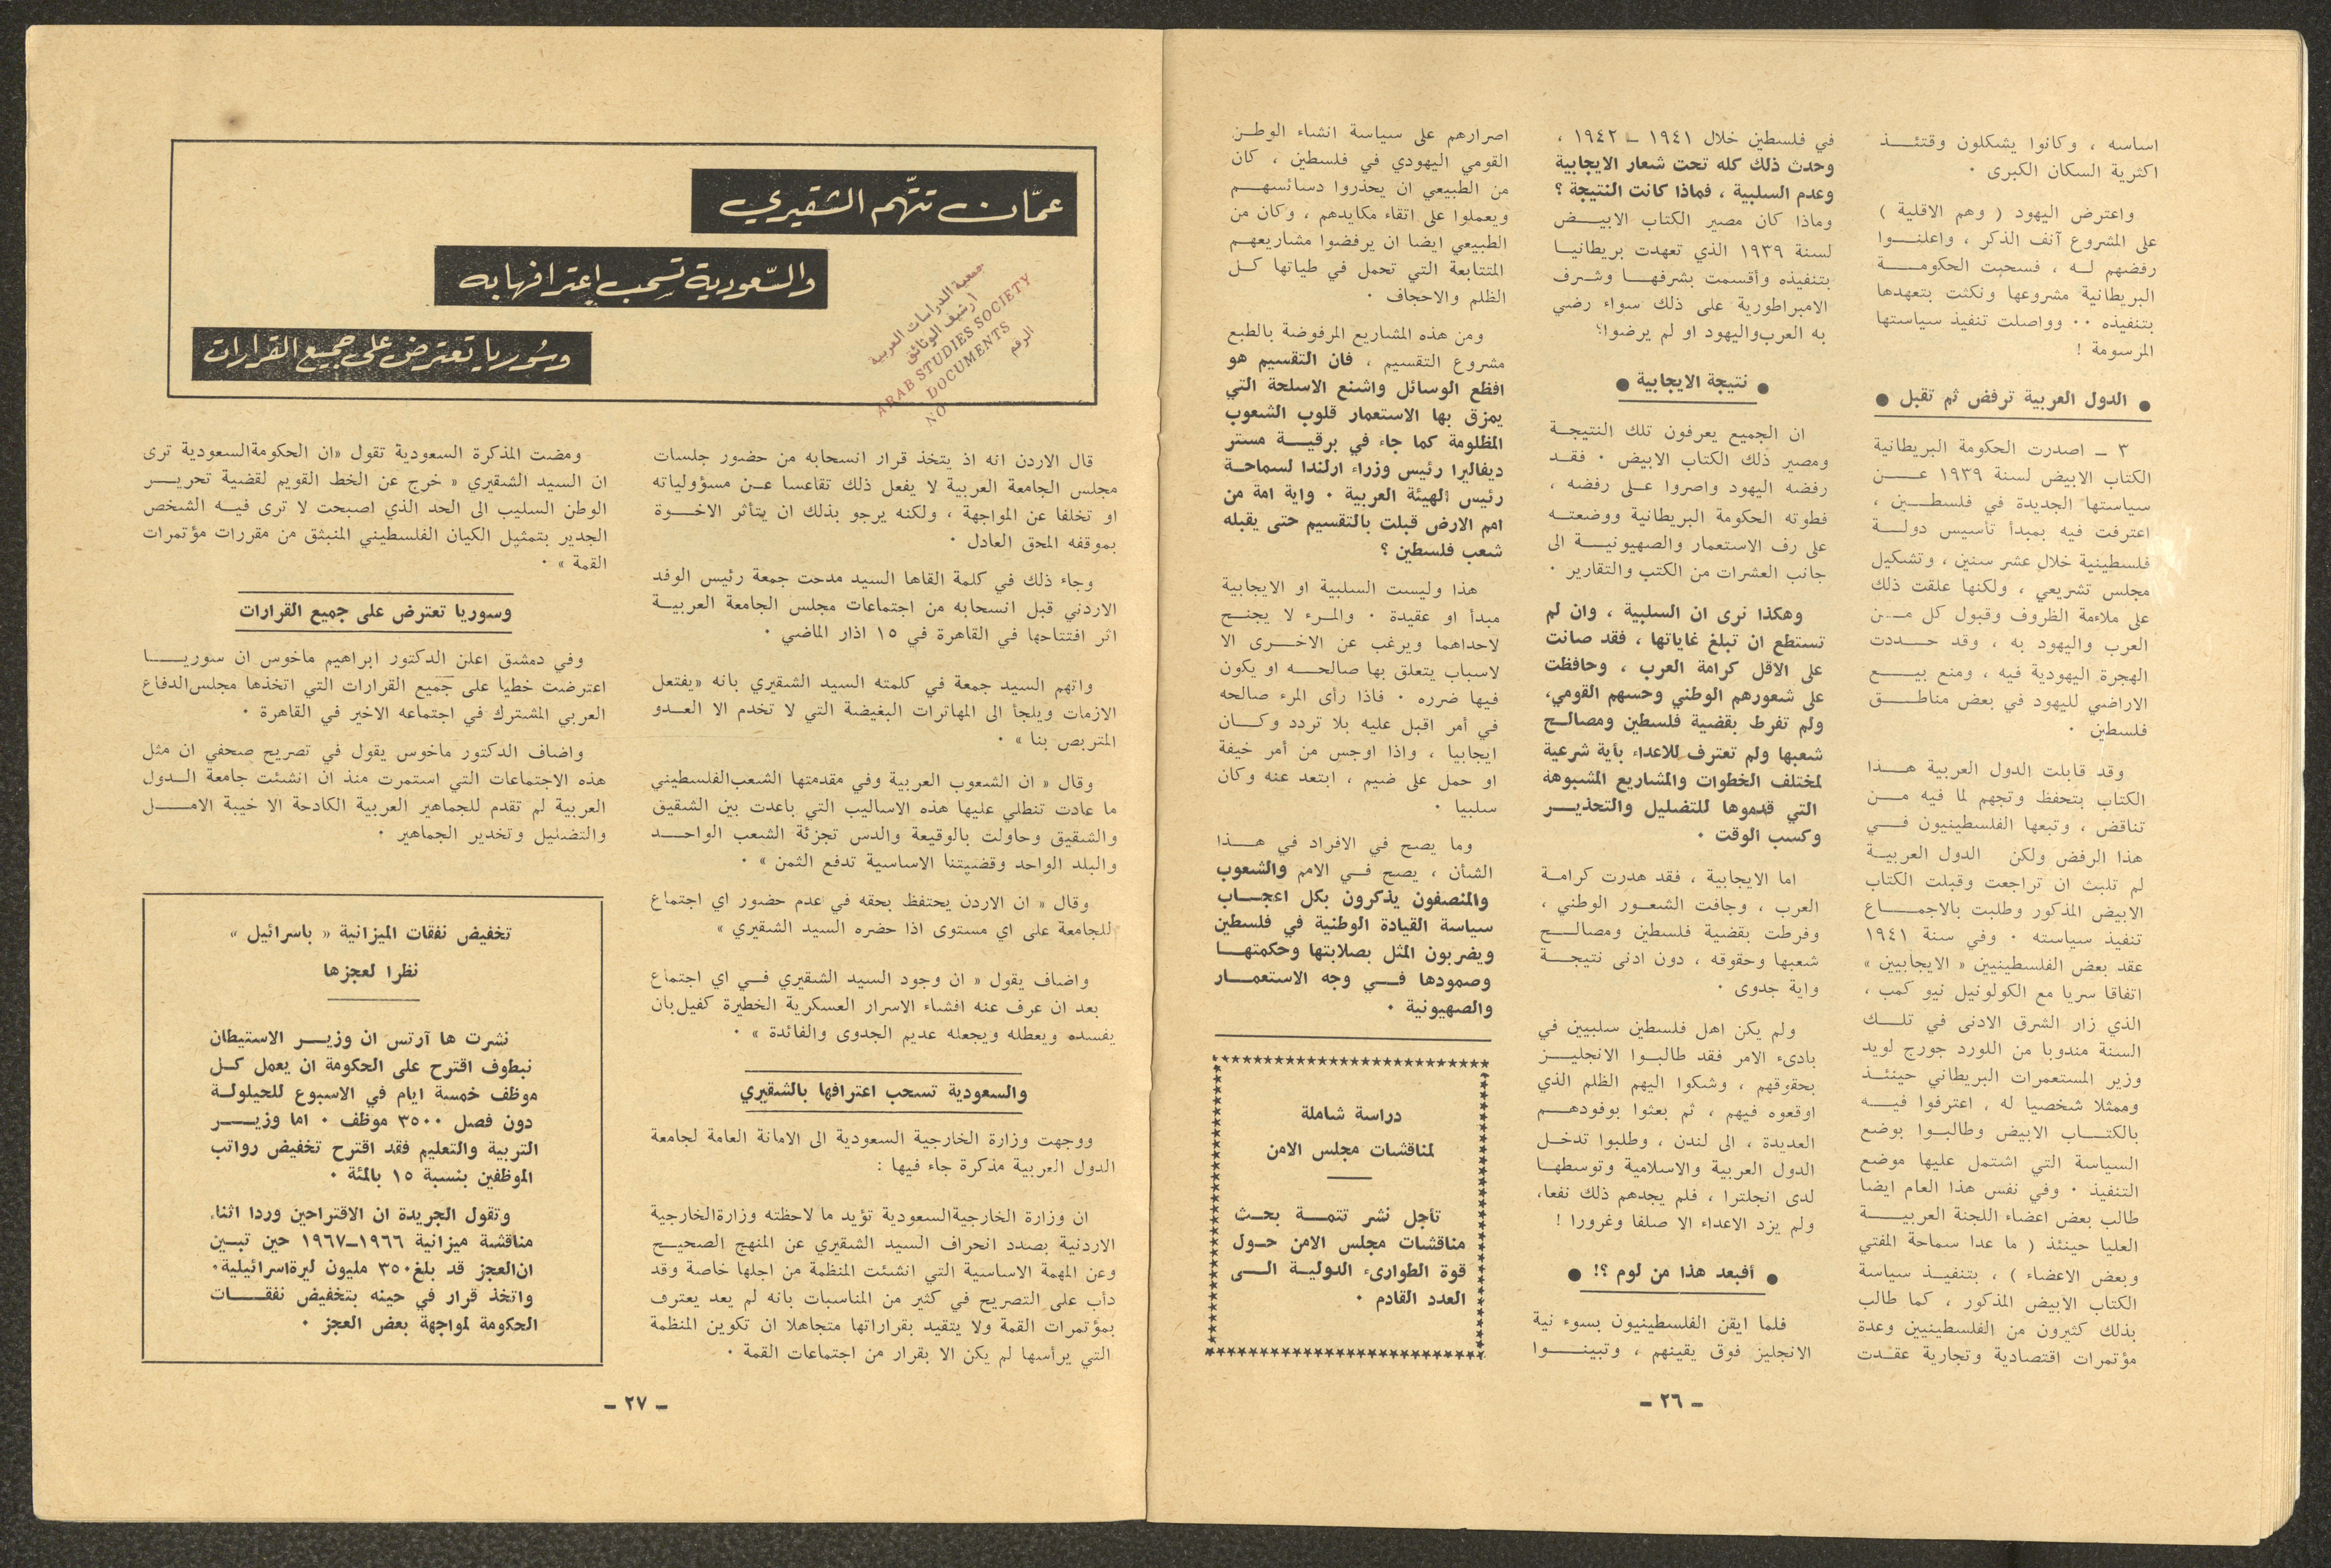 اساسه ، وكانوا يشكلون وقتئذ
اكثرية السكان الكبرى .
واعترض اليهود ( وهم الاقلية )
على المشروع آنف الذكر ، واعلنوا
رفضهم له ، فسحبت الحكومة
البريطانية مشروعها ونكثت بتعهدها
بتنفيذه .. وواصلت تنفيذ سياستها
المرسومة !
● الدول العربية ترفض ثم تقبل ●
٣ ـ اصدرت الحكومة البريطانية
الكتاب الابيض لسنة ١٩٣٩ عن
سياستها الجديدة في فلسطين ،
اعترفت فيه بمبدأ تأسيس دولة
فلسطينية خلال عشر سنين ، وتشكيل
مجلس تشريعي ، ولكنها علقت ذلك
على ملاءمة الظروف وقبول كل من
العرب واليهود به ، وقد حددت
الهجرة اليهودية فيه ، ومنع بيع
الاراضي لليهود في بعض مناطق
فلسطين .
وقد قابلت الدول العربية هذا
الكتاب بتحفظ وتجهم لما فيه من
تناقض ، وتبعها الفلسطينيون في
هذا الرفض ولكن الدول العربية
لم تلبث ان تراجعت وقبلت الكتاب
الابيض المذكور وطلبت بالاجماع
تنفيذ سياسته . وفي سنة ١٩٤١
عقد بعض الفلسطينيين « الايجابيين »
اتفاقا سريا مع الكولونيل نيو كمب ،
الذي زار الشرق الادنى في تلك
السنة مندوبا من اللورد جورج لويد
وزير المستعمرات البريطاني حينئذ
وممثلا شخصيا له ، اعترفوا فيه
بالكتاب الابيض وطالبوا بوضع
السياسة التي اشتمل عليها موضع
التنفيذ . وفي نفس هذا العام ايضا
طالب بعض اعضاء اللجنة العربية
العليا حينئذ ( ما عدا سماحة المفتي
وبعض الاعضاء ) ، بتنفيذ سياسة
الكتاب الابيض المذكور ، كما طالب
بذلك كثيرون من الفلسطينيين وعدة
مؤتمرات اقتصادية وتجارية عقدت
في فلسطين خلال ١٩٤١ ـ ١٩٤٢ ،
وحدث ذلك كله تحت شعار الايجابية
وعدم السلبية ، فماذا كانت النتيجة ؟
وماذا كان مصير الكتاب الابيض
لسنة ١٩٣٩ الذي تعهدت بريطانيا
بتنفيذه وأقسمت بشرفها وشرف
الامبراطورية على ذلك سواء رضي
به العرب واليهود او لم يرضوا؟
● نتيجة الايجابية ●
ان الجميع يعرفون تلك النتيجة
ومصير ذلك الكتاب الابيض . فقد
رفضه اليهود واصروا على رفضه ،
فطوته الحكومة البريطانية ووضعته
على رف الاستعمار والصهيونية الى
جانب العشرات من الكتب والتقارير .
وهكذا نرى ان السلبية ، وان لم
تستطع ان تبلغ غاياتها ، فقد صانت
على الاقل كرامة العرب ، وحافظت
على شعورهم الوطني وحسهم القومي،
ولم تفرط بقضية فلسطين ومصالح
شعبها ولم تعترف للاعداء بأية شرعية
لمختلف الخطوات والمشاريع المشبوهة
التي قدموها للتضليل والتخدير
وكسب الوقت .
اما الايجابية ، فقد هدرت كرامة
العرب ، وجافت الشعور الوطني ،
وفرطت بقضية فلسطين ومصالح
شعبها وحقوقه ، دون ادنى نتيجة
واية جدوى .
ولم يكن اهل فلسطين سلبيين في
بادىء الامر فقد طالبوا الانجليز
بحقوقهم ، وشكوا اليهم الظلم الذي
اوقعوه فيهم ، ثم بعثوا بوفودهم
العديدة ، الى لندن ، وطلبوا تدخل
الدول العربية والاسلامية وتوسطها
لدى انجلترا ، فلم يجدهم ذلك نفعا،
ولم يزد الاعداء الا صلفا وغرورا !
● أفبعد هذا من لوم ؟! ●
فلما ايقن الفلسطينيون بسوء نية
الانجليز فوق يقينهم ، وتبينوا
اصرارهم على سياسة انشاء الوطن
القومي اليهودي في فلسطين ، كان
من الطبيعي ان يحذروا دسائسهم
ويعملوا على اتقاء مكايدهم ، وكان من
الطبيعي ايضا ان يرفضوا مشاريعهم
المتتابعة التي تحمل في طياتها كل
الظلم والاحجاف .
ومن هذه المشاريع المرفوضة بالطبع
مشروع التقسيم ، فان التقسيم هو
افظع الوسائل واشنع الاسلحة التي
يمزق بها الاستعمار قلوب الشعوب
المظلومة كما جاء في برقية مستر
ديفاليرا رئيس وزراء ارلندا لسماحة
رئيس الهيئة العربية . واية امة من
امم الارض قبلت بالتقسيم حتى يقبله
شعب فلسطين ؟
هذا وليست السلبية او الايجابية
مبدأ او عقيدة . والمرء لا يجنح
لاحداهما ويرغب عن الاخرى الا
لاسباب يتعلق بها صالحه او يكون
فيها ضرره . فاذا رأى المرء صالحه
في أمر اقبل عليه بلا تردد وكان
ايجابيا ، واذا اوجس من أمر خيفة
او حمل على ضيم ، ابتعد عنه وكان
سلبيا .
وما يصح في الافراد في هذا
الشأن ، يصح في الامم والشعوب
والمنصفون يذكرون بكل اعجاب
سياسة القيادة الوطنية في فلسطين
ويضربون المثل بصلابتها وحكمتها
وصمودها في وجه الاستعمار
والصهيونية .
دراسة شاملة
لمناقشات مجلس الامن
تأجل نشر تتمة بحث
مناقشات مجلس الامن حول
قوة الطوارىء الدولية الى
العدد القادم .
ـ ٢٦ ـ
عمّان تتّهم الشقيري
والسّعودية تسحب إعترافها به
وسُوريا تعترض على جميع القرارات
جمعية الدراسات العربية
ارشيف الوثائق
ARAB STUDIES SOCIETY
DOCUMENTS
NO الرقم
قال الاردن انه اذ يتخذ قرار انسحابه من حضور جلسات
مجلس الجامعة العربية لا يفعل ذلك تقاعسا عن مسؤولياته
او تخلفا عن المواجهة ، ولكنه يرجو بذلك ان يتأثر الاخوة
بموقفه المحق العادل .
وجاء ذلك في كلمة القاها السيد مدحت جمعة رئيس الوفد
الاردني قبل انسحابه من اجتماعات مجلس الجامعة العربية
اثر افتتاحها في القاهرة في ١٥ اذار الماضي .
واتهم السيد جمعة في كلمته السيد الشقيري بانه «يفتعل
الازمات ويلجأ الى المهاترات البغيضة التي لا تخدم الا العدو
المتربص بنا » .
وقال « ان الشعوب العربية وفي مقدمتها الشعب الفلسطيني
ما عادت تنطلي عليها هذه الاساليب التي باعدت بين الشقيق
والشقيق وحاولت بالوقيعة والدس تجزئة الشعب الواحد
والبلد الواحد وقضيتنا الاساسية تدفع الثمن » .
وقال « ان الاردن يحتفظ بحقه في عدم حضور اي اجتماع
للجامعة على اي مستوى اذا حضره السيد الشقيري »
واضاف يقول « ان وجود السيد الشقيري في اي اجتماع
بعد ان عرف عنه افشاء الاسرار العسكرية الخطيرة كفيل بان
يفسده ويعطله ويجعله عديم الجدوى والفائدة » .
والسعودية تسحب اعترافها بالشقيري
ووجهت وزارة الخارجية السعودية الى الامانة العامة لجامعة
الدول العربية مذكرة جاء فيها :
ان وزارة الخارجية السعودية تؤيد ما لاحظته وزارة الخارجية
الاردنية بصدد انحراف السيد الشقيري عن المنهج الصحيح
وعن المهمة الاساسية التي انشئت المنظمة من اجلها خاصة وقد
دأب على التصريح في كثير من المناسبات بانه لم يعد يعترف
بمؤتمرات القمة ولا يتقيد بقراراتها متجاهلا ان تكوين المنظمة
التي يرأسها لم يكن الا بقرار من اجتماعات القمة .
ومضت المذكرة السعودية تقول «ان الحكومة السعودية ترى
ان السيد الشقيري « خرج عن الخط القويم لقضية تحرير
الوطن السليب الى الحد الذي اصبحت لا ترى فيه الشخص
الجدير بتمثيل الكيان الفلسطيني المنبثق من مقررات مؤتمرات
القمة » .
وسوريا تعترض على جميع القرارات
وفي دمشق اعلن الدكتور ابراهيم ماخوس ان سوريا
اعترضت خطيا على جميع القرارات التي اتخذها مجلس الدفاع
العربي المشترك في اجتماعه الاخير في القاهرة .
واضاف الدكتور ماخوس يقول في تصريح صحفي ان مثل
هذه الاجتماعات التي استمرت منذ ان انشئت جامعة الدول
العربية لم تقدم للجماهير العربية الكادحة الا خيبة الامل
والتضليل وتخدير الجماهير .
تخفيض نفقات الميزانية « باسرائيل »
نظرا لعجزها
نشرت ها آرتس ان وزير الاستيطان
نبطوف اقترح على الحكومة ان يعمل كل
موظف خمسة ايام في الاسبوع للحيلولة
دون فصل ٣٥٠٠ موظف . اما وزير
التربية والتعليم فقد اقترح تخفيض رواتب
الموظفين بنسبة ١٥ بالمئة .
وتقول الجريدة ان الاقتراحين وردا اثناء
مناقشة ميزانية ١٩٦٦ـ١٩٦٧ حين تبين
ان العجز قد بلغ ٣٥٠ مليون ليرة اسرائيلية.
واتخذ قرار في حينه بتخفيض نفقات
الحكومة لمواجهة بعض العجز .
ـ ٢٧ ـ